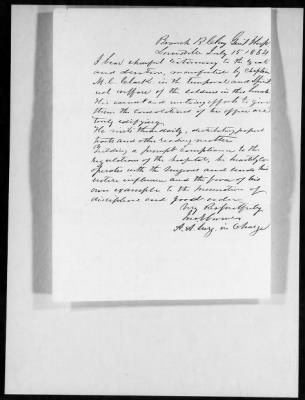 Branch B Clay Genl Hosp
Louisville July 15 1864
I bear cheerful testimony to the zeal
and devotion, manifested by Chaplain
M. C. Clark in the temporal and Spirit
ual welfare of the soldiers in this
His earnest and untiring efforts to give
them the consolations of his office are
truly edifying.
He visits them daily, distributing papers
tracts and other reading matter
Yielding a prompt compliance to the
regulations of the hospital, he heartily co
operates with the Surgeons and lends his
entire influence and the force of his
own example to the promotion of
discipline and good order
Very Respectfully
A. A. Surg. in Charge